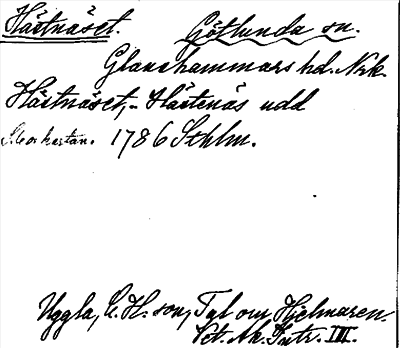 Hästnäset. Götlunda sn.
Glanshammars hd. Nrk.
Hästnäset, - Hästenäs udd
Sleorkartan. 1786 Sthlm.
Uggla, C. H. son, Tal om Hjelmaren.
Vet. Ak. Intr. III.